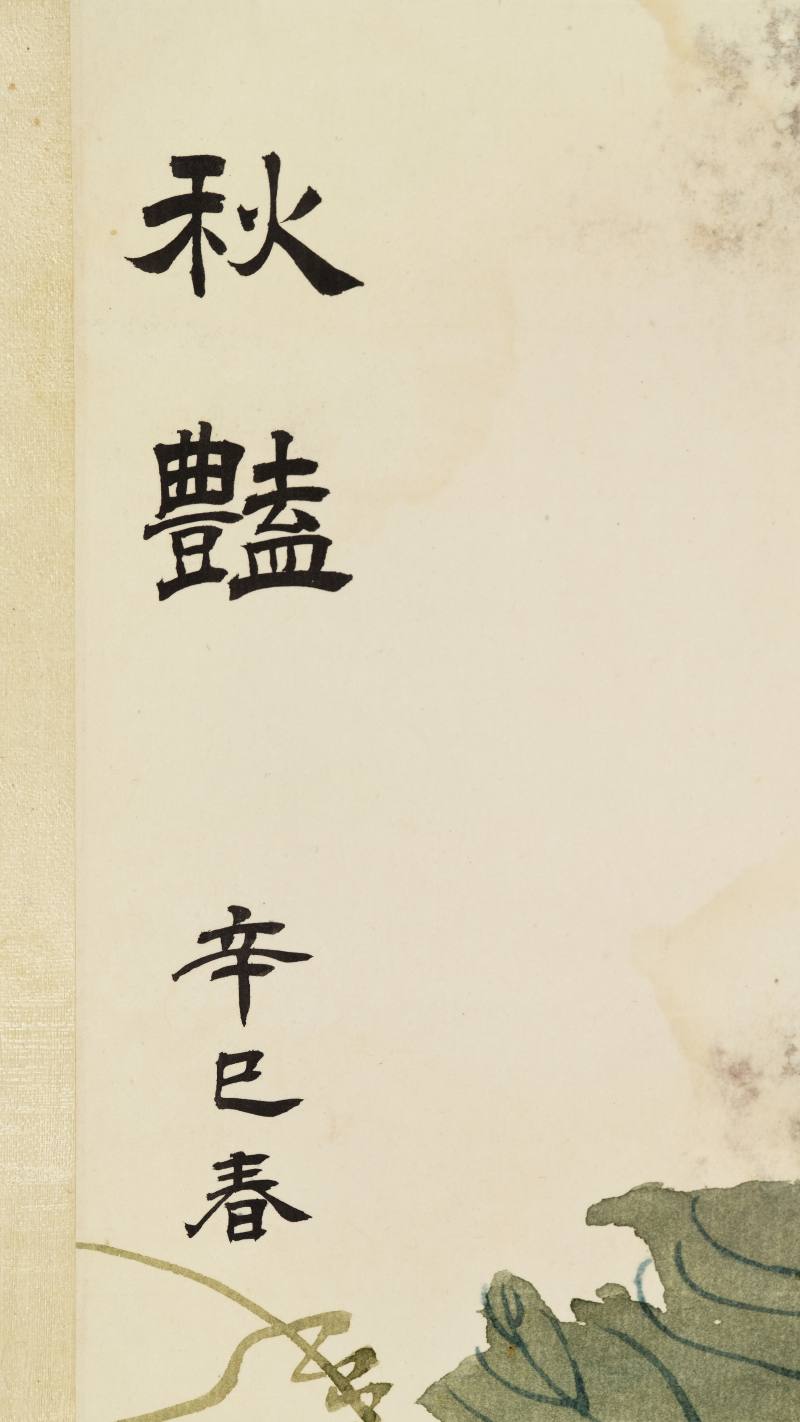 秋豔
辛巳春